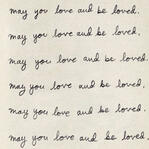 may you love and be loved.
may you love and be loved,
may you love and be loved.
may you love and be loved,
may you love and be loved.
may you love and be loved,